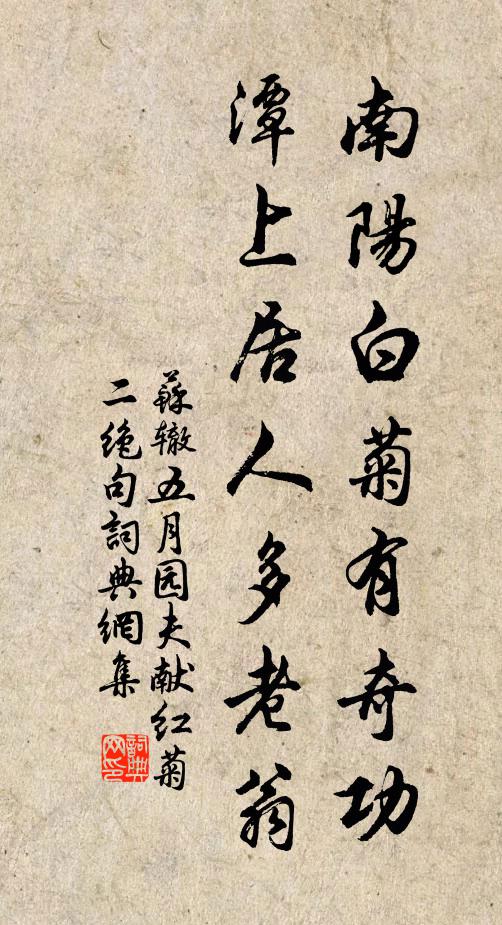 南陽白菊有奇功
潭上居人多老翁
蘇辙五月园夫献红菊
二绝句詞典網集
詞典
网印